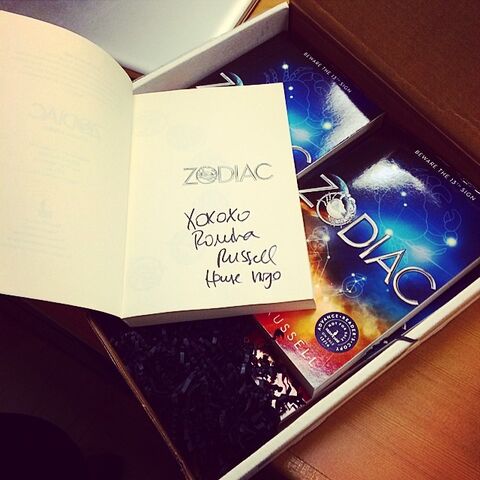 ZODIAC
Xoxoxo
Romina
Russell
House Virgo
BEWARE THE 13TH SIGN
ZODIAC
BEWARE THE 13TH SIGN
ZODIAC
RUSSELL
ADVANCE • READER'S • COPY
NOT FOR SALE